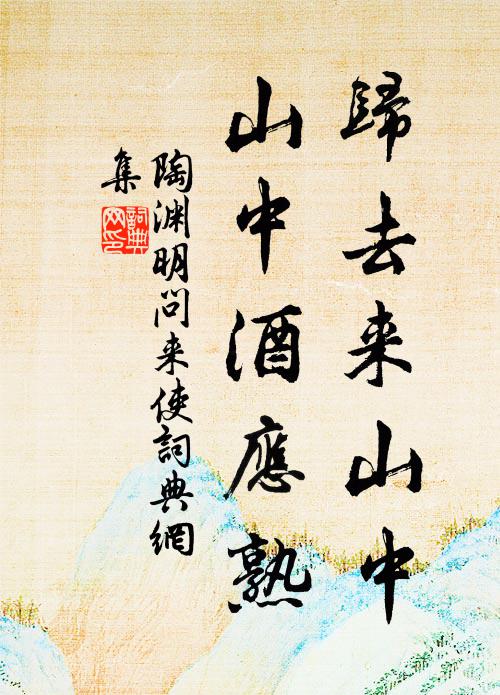 歸去来山中
山中酒應熟
陶渊明問来使詞典網
集
詞典
网印